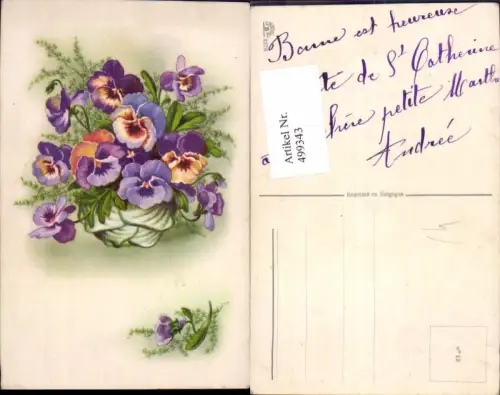 Bonne est heureuse
te de St Catherine
hère petite Marth
Andrée
Artikel Nr.
499343
Imprimé en Belgique